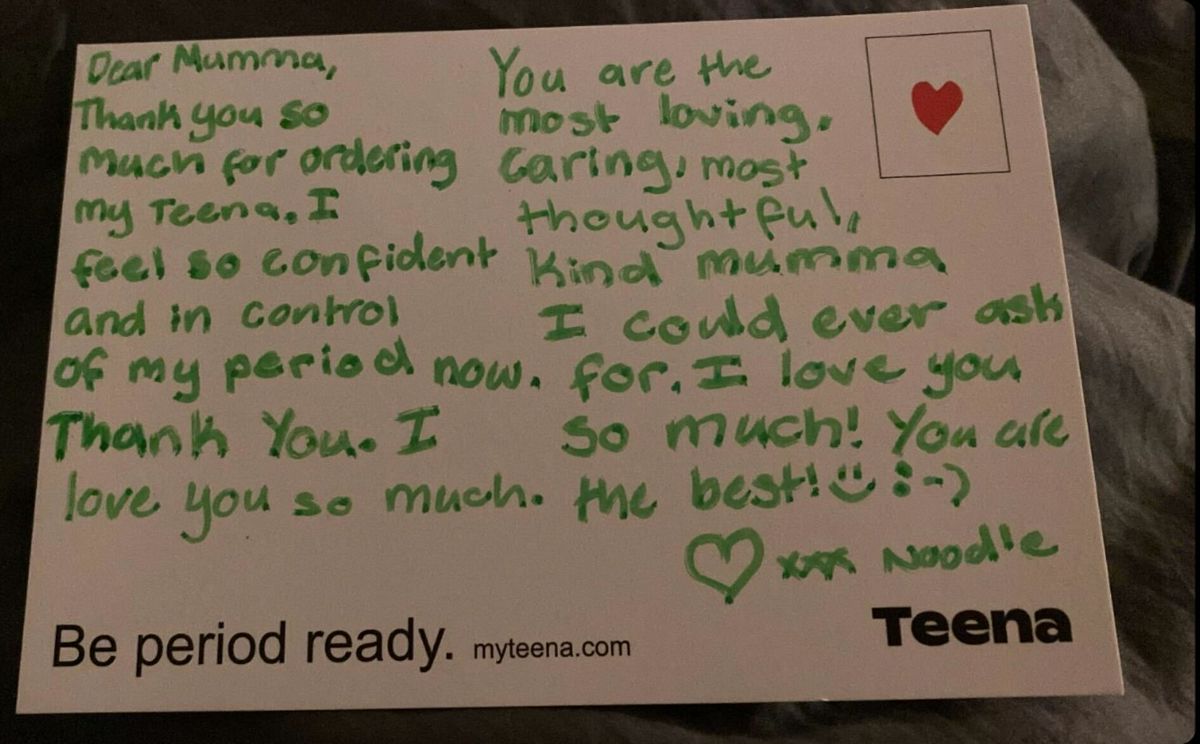 Dear Mumma,
Thank you so
much for ordering
my Teena. I
feel so confident
and in control
of my period now.
Thank You. I
love you so much.
You are the
most loving,
caring, most
thoughtful,
kind mumma
I could ever ask
for. I love you
so much! You are
the best! :-)
xxx Noodle
Be period ready. myteena.com
Teena